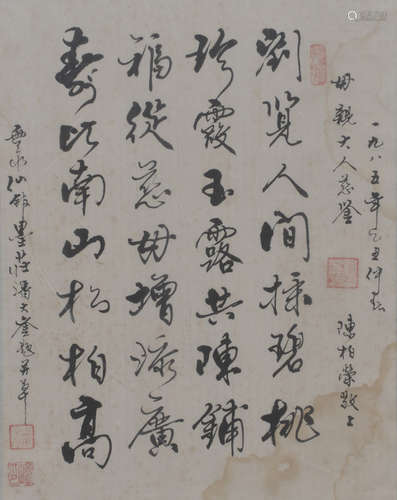 一九八五年乙丑仲春
母親大人慈鑒
陳柏榮敬上
劉覓人間採碧桃
珍霞玉露共陳鋪
福從慈母增添廣
壽比南山松柏高
仙館墨莊潘大鑒題并草